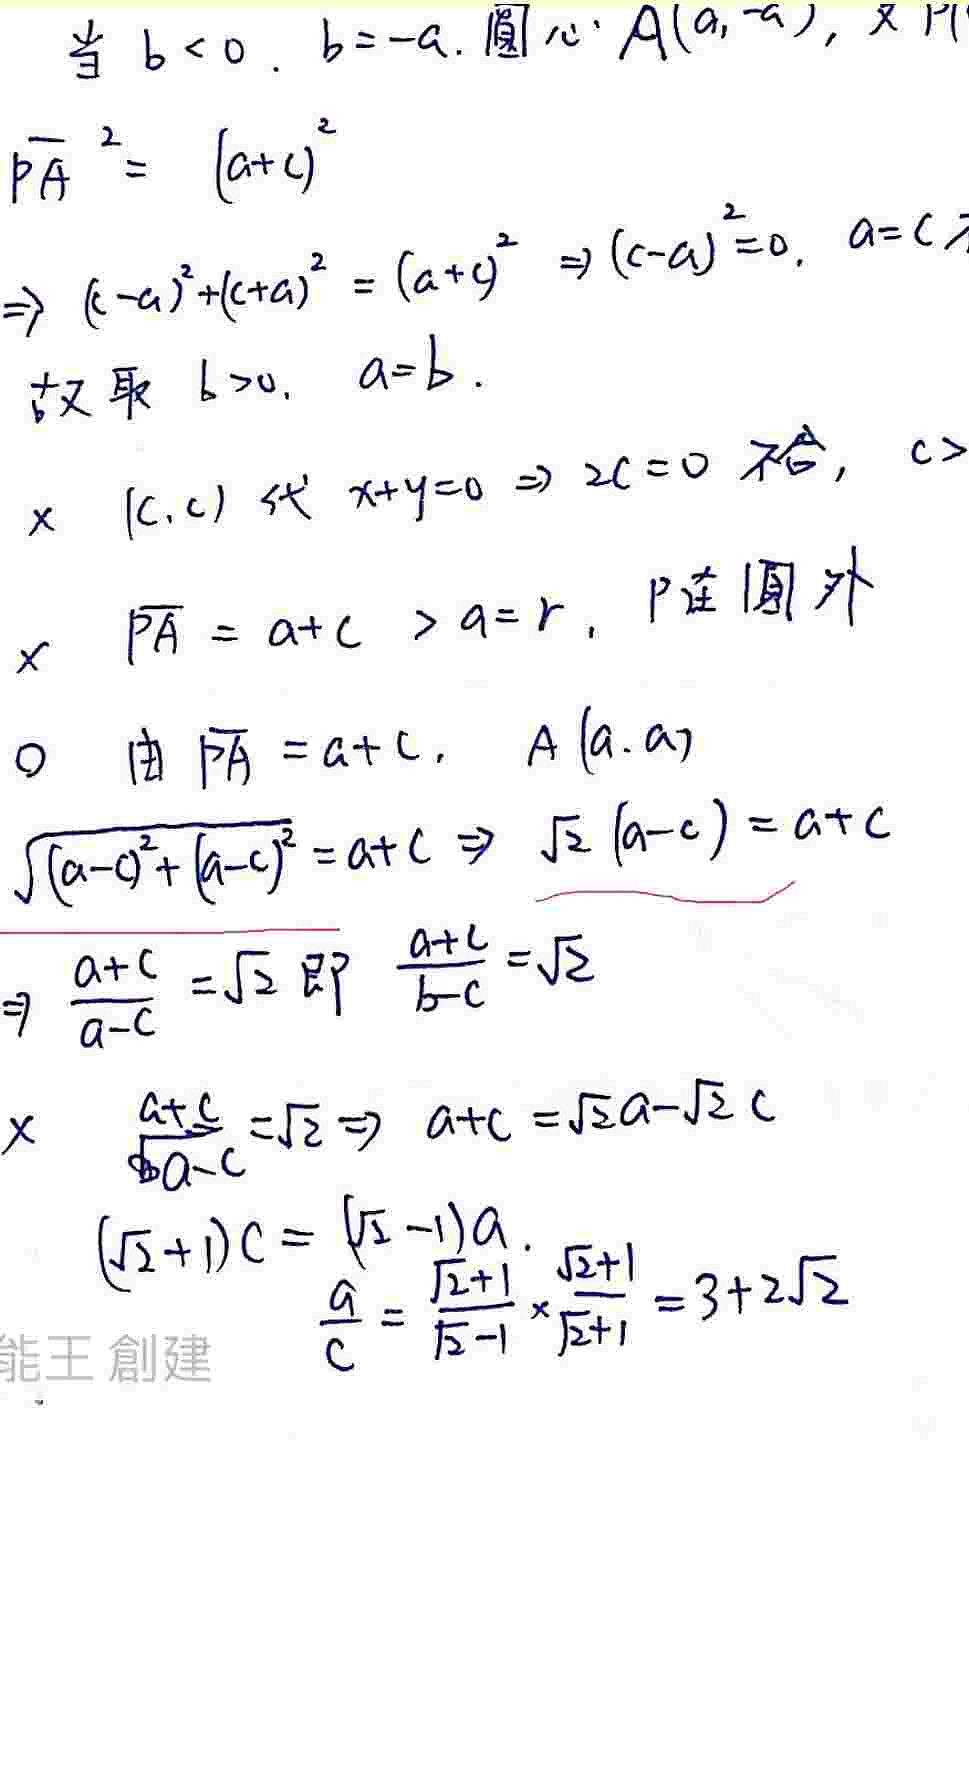 当 b < 0. b = -a. 圓心 A(a, -a), 又 P(
\overline{PA}² = (a+c)²
⇒ (c-a)² + (c+a)² = (a+c)² ⇒ (c-a)² = 0. a = c
故取 b > 0. a = b.
× (c, c) 代 x+y=0 ⇒ 2c = 0 不合, c >
× \overline{PA} = a+c > a = r, P在圓外
○ 由 \overline{PA} = a+c, A(a, a)
√((a-c)² + (a-c)²) = a+c ⇒ √2 (a-c) = a+c
⇒ (a+c)/(a-c) = √2 即 (a+c)/(b-c) = √2
× (a+c)/(a-c) = √2 ⇒ a+c = √2a - √2c
(√2+1)c = (√2-1)a.
a/c = (√2+1)/(√2-1) × (√2+1)/(√2+1) = 3+2√2
能王 創建